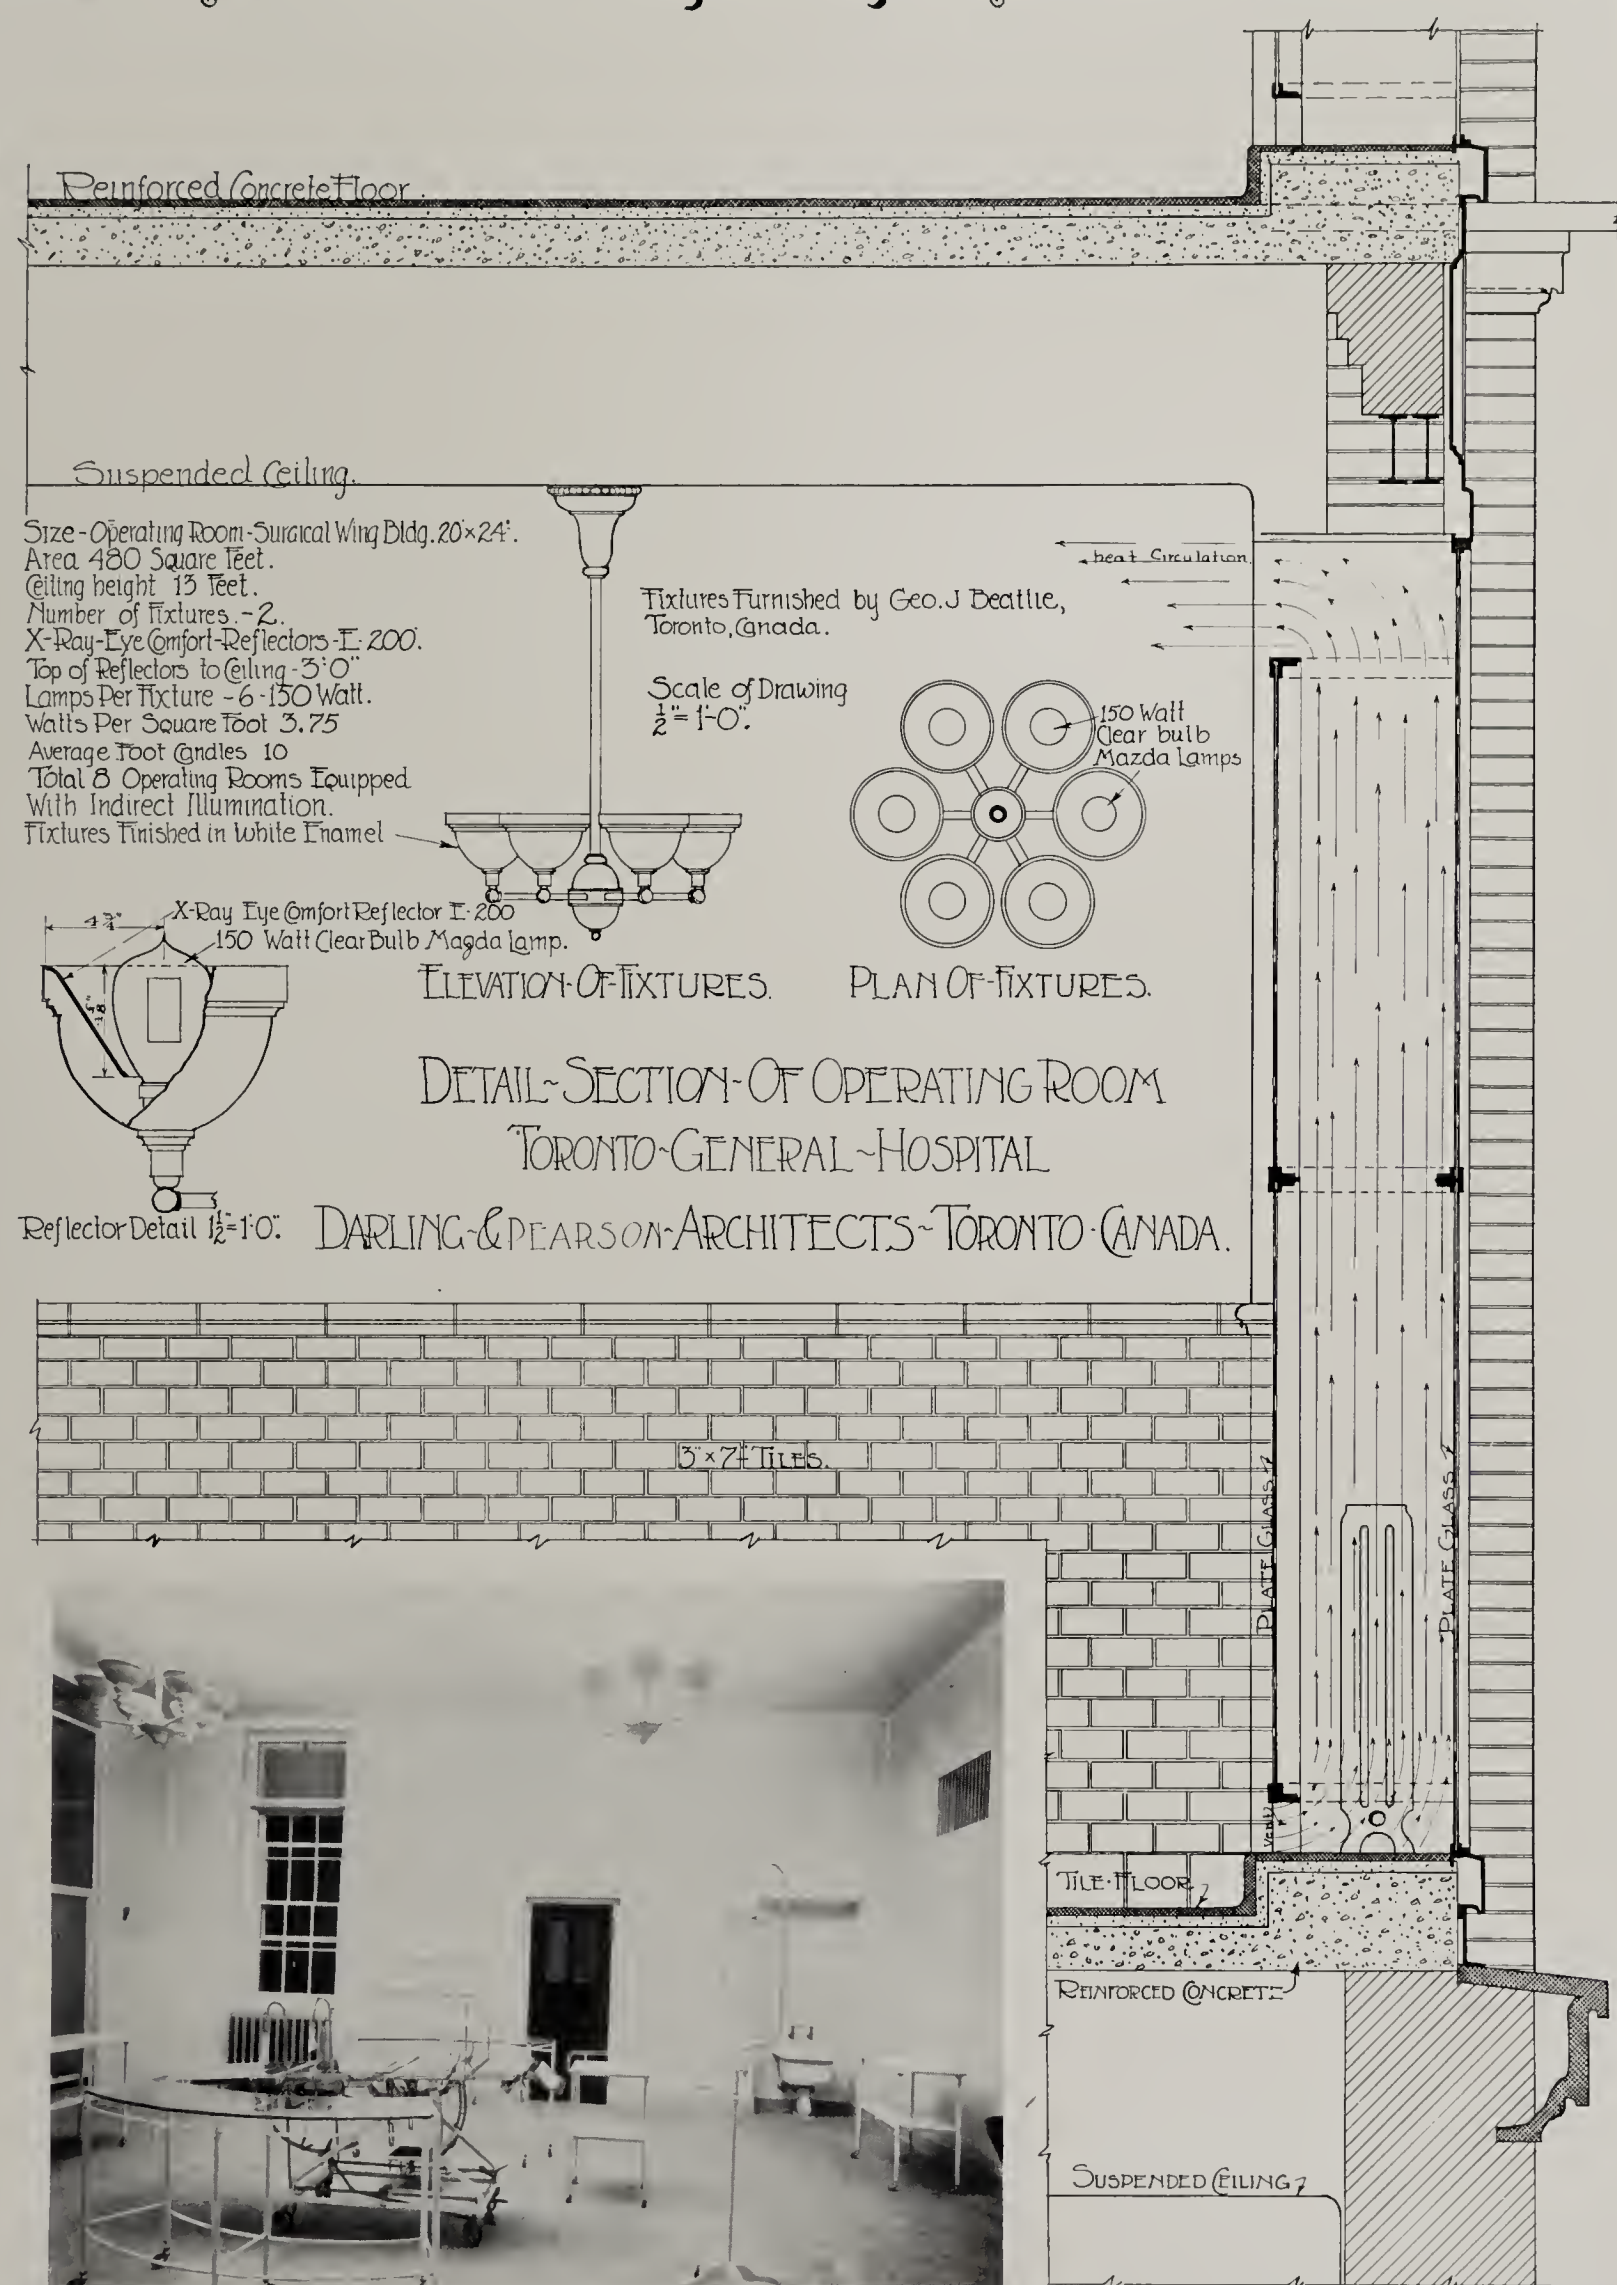 Reinforced Concrete Floor.
Suspended Ceiling.
Size-Operating Room-Surgical Wing Bldg. 20'×24'.
Area 480 Square Feet.
Ceiling height 13 Feet.
Number of Fixtures.-2.
X-Ray-Eye Comfort-Reflectors-E-200.
Top of Reflectors to Ceiling-3'0"
Lamps Per Fixture -6-150 Watt.
Watts Per Square Foot 3.75
Average Foot Candles 10
Total 8 Operating Rooms Equipped
With Indirect Illumination.
Fixtures Finished in White Enamel
heat Circulation
Fixtures Furnished by Geo. J Beattie,
Toronto, Canada.
Scale of Drawing
½"=1'-0".
150 Watt
Clear bulb
Mazda Lamps
X-Ray Eye Comfort Reflector E-200
150 Watt Clear Bulb Magda Lamp.
4¾"
Elevation-Of-Fixtures.
Plan Of-Fixtures.
Detail~Section-Of Operating Room
Toronto-General~Hospital
Darling-&Pearson-Architects~Toronto-Canada.
Reflector Detail 1½"=1'0".
Tiles.
Plate Glass
Plate Glass
Vent
Tile-Floor
Reinforced Concrete
Suspended Ceiling